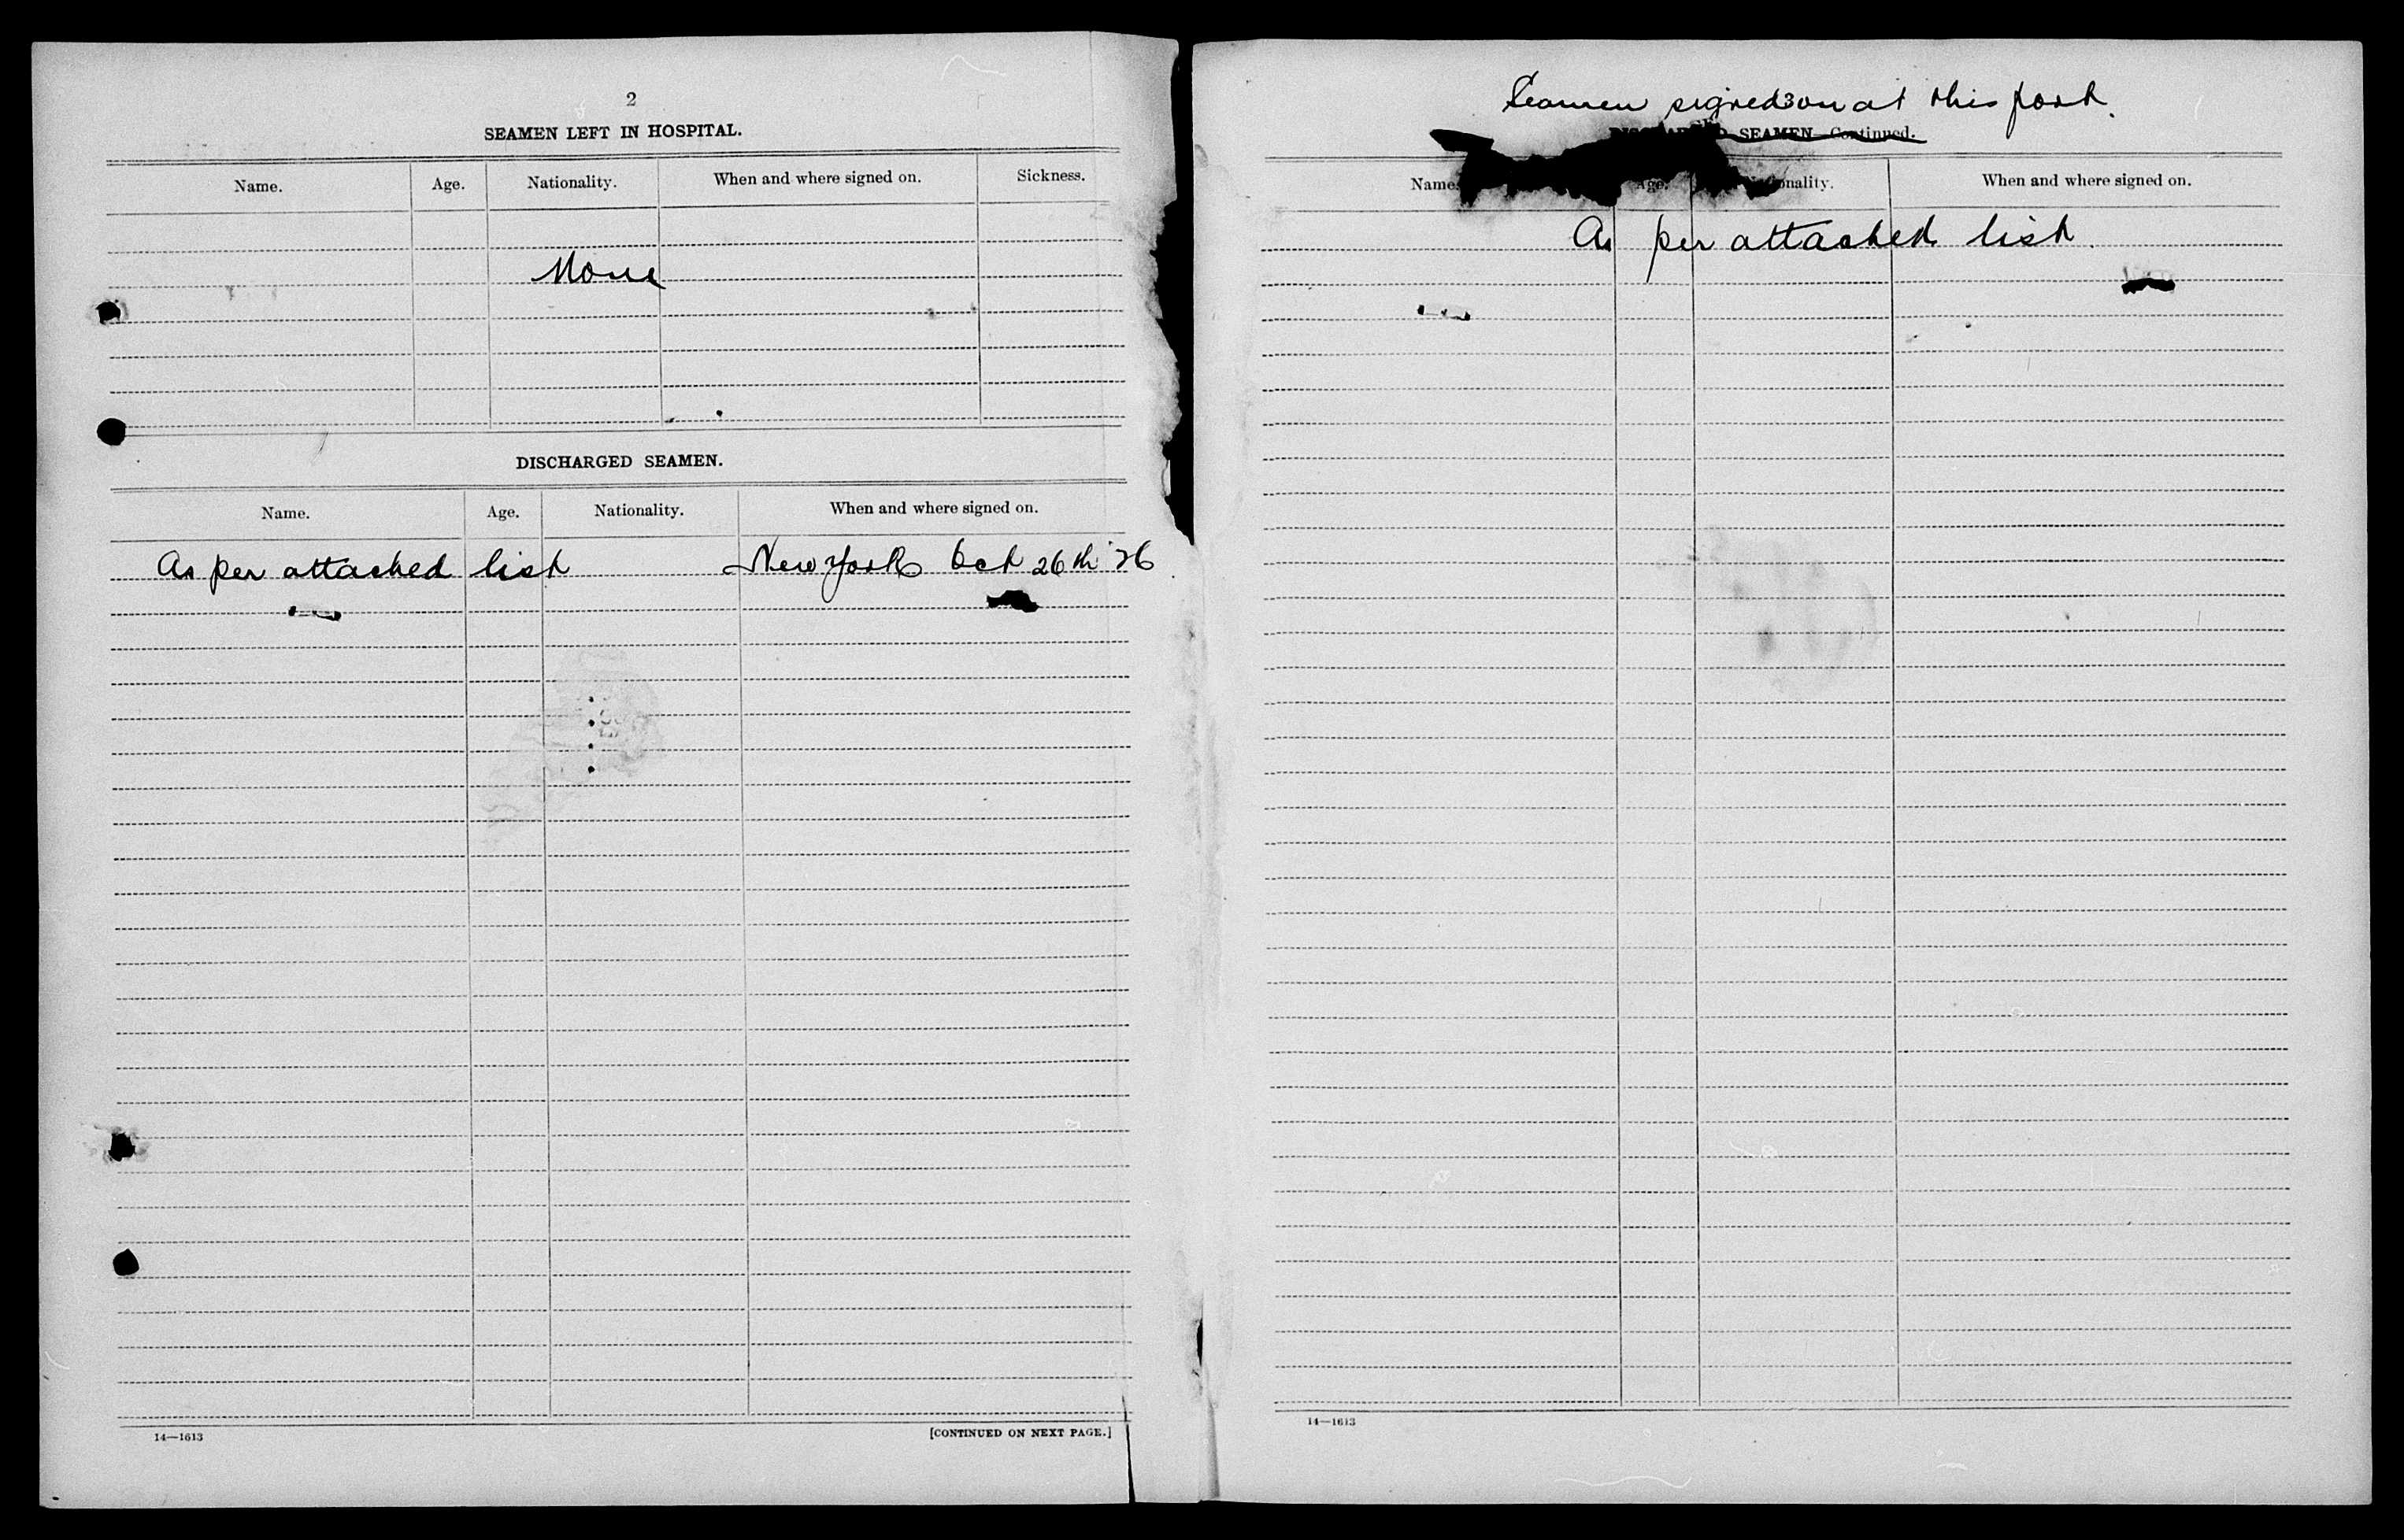 2
SEAMEN LEFT IN HOSPITAL.
Name. Age. Nationality. When and where signed on. Sickness.
None
DISCHARGED SEAMEN.
Name. Age. Nationality. When and where signed on.
As per attached list New York Oct 26th '26
14—1613 [CONTINUED ON NEXT PAGE.]
Seamen signed on at this port.
3
DISCHARGED SEAMEN—Continued.
Name. Age. Nationality. When and where signed on.
As per attached list.
14—1613